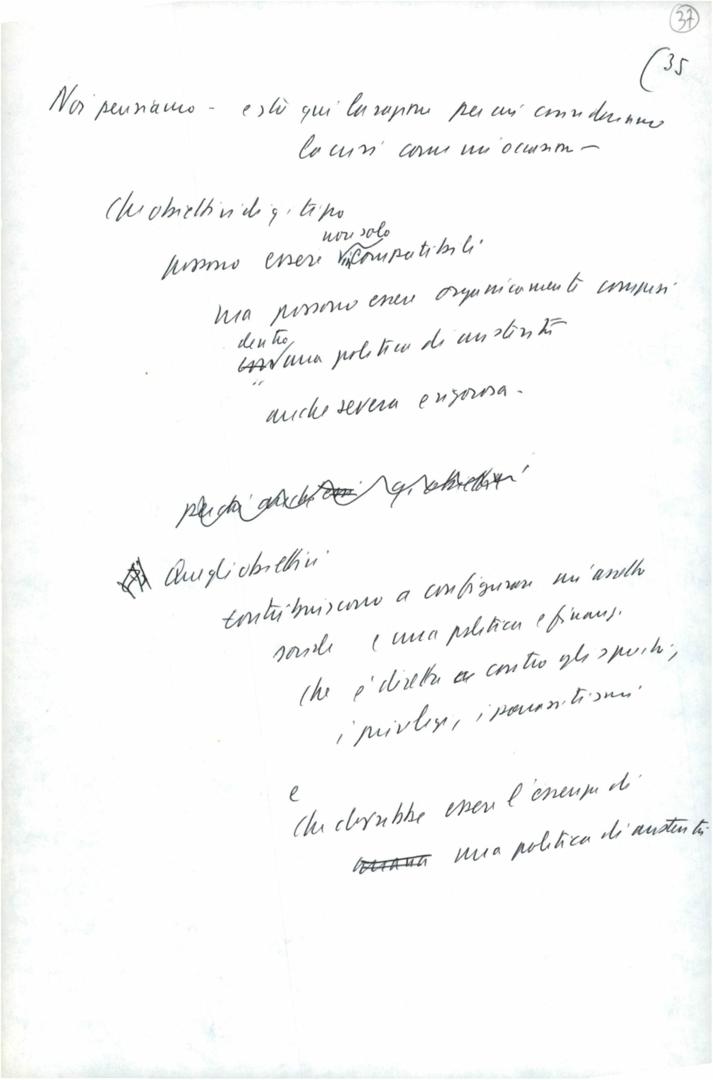 37
(35
Noi pensiamo - e sta qui la ragione per cui consideriamo
la crisi come un'occasione -
Che obiettivi di q. tipo
non solo
possono essere compatibili
ma possono essere organicamente compresi
dentro
una politica di austerità
anche severa e rigorosa -
q. obiettivi
Quegli obiettivi
contribuiscono a configurare un'assetto
sociale e una politica e finanz.
che è diretta contro gli sprechi,
i privilegi, i parassitismi
e
che dovrebbe essere l'essenza di
una politica di austerità